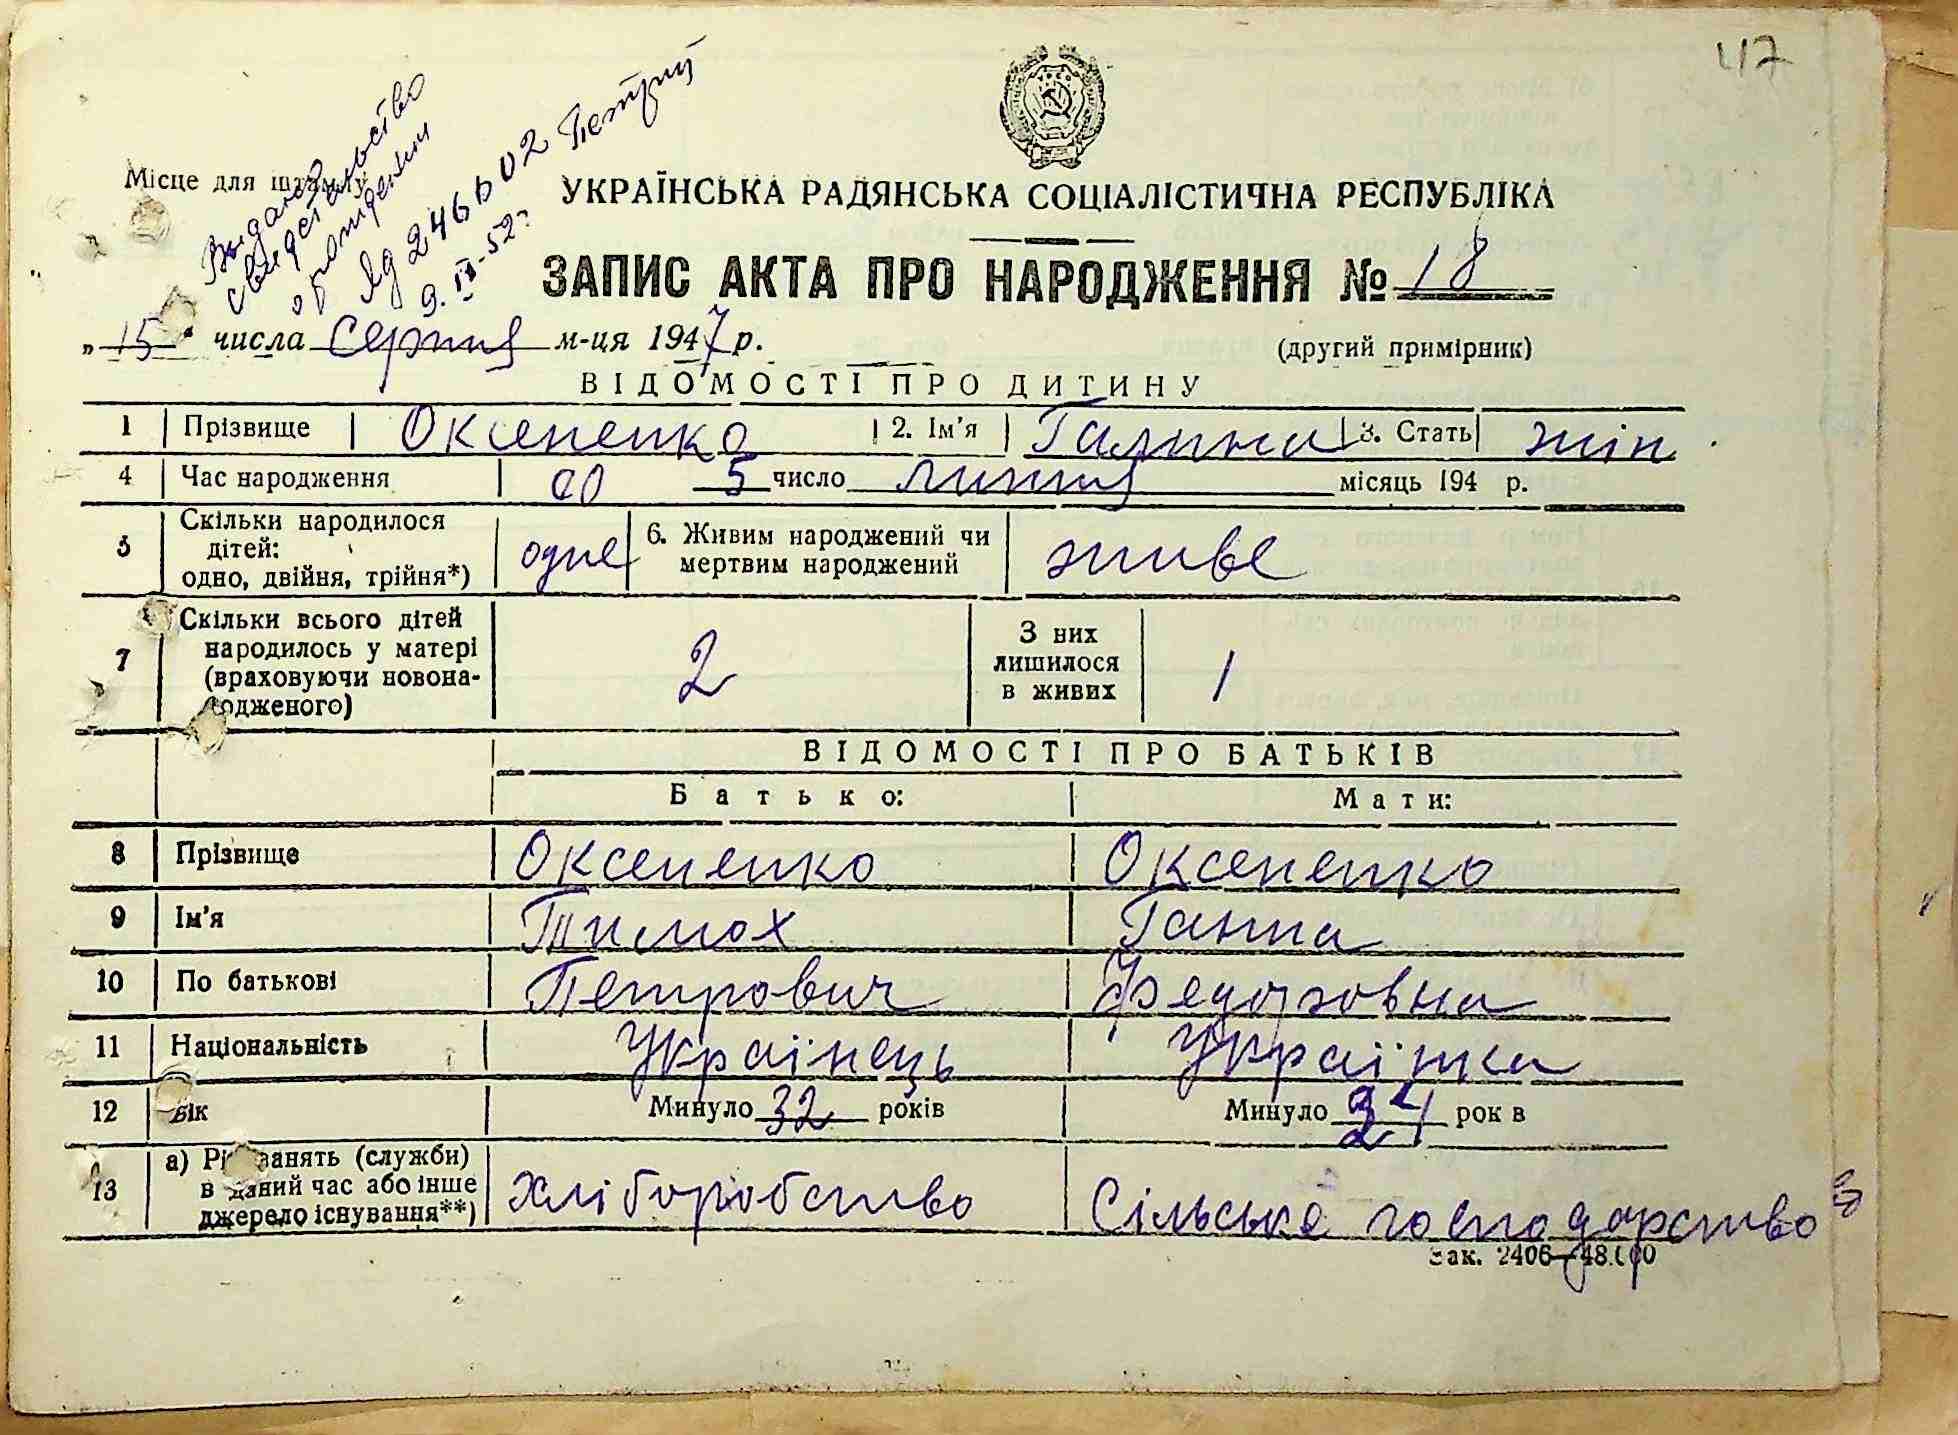 47
Місце для штампу
Выдано
свидетельство
о рождении
ЯД 246602
9.IV-52г
УКРАЇНСЬКА РАДЯНСЬКА СОЦІАЛІСТИЧНА РЕСПУБЛІКА
ЗАПИС АКТА ПРО НАРОДЖЕННЯ № 18
„15“ числа серпня м-ця 1947 р.
(другий примірник)
ВІДОМОСТІ ПРО ДИТИНУ
1 Прізвище Оксененко 2. Ім’я Галина 3. Стать жін
4 Час народження 5 число липня місяць 194 р.
5 Скільки народилося дітей: одно, двійня, трійня*) одне 6. Живим народжений чи мертвим народжений живе
7 Скільки всього дітей народилось у матері (враховуючи новонародженого) 2 З них лишилося в живих 1
ВІДОМОСТІ ПРО БАТЬКІВ
Батько: Мати:
8 Прізвище Оксененко Оксененко
9 Ім’я Тимох Ганна
10 По батькові Петрович Федотовна
11 Національність Українець Українка
12 Вік Минуло 32 років Минуло рок в
13 а) Рід занять (служби) в даний час або інше джерело існування**) хліборобство Сільське господарство
Зак. 2406—48.000